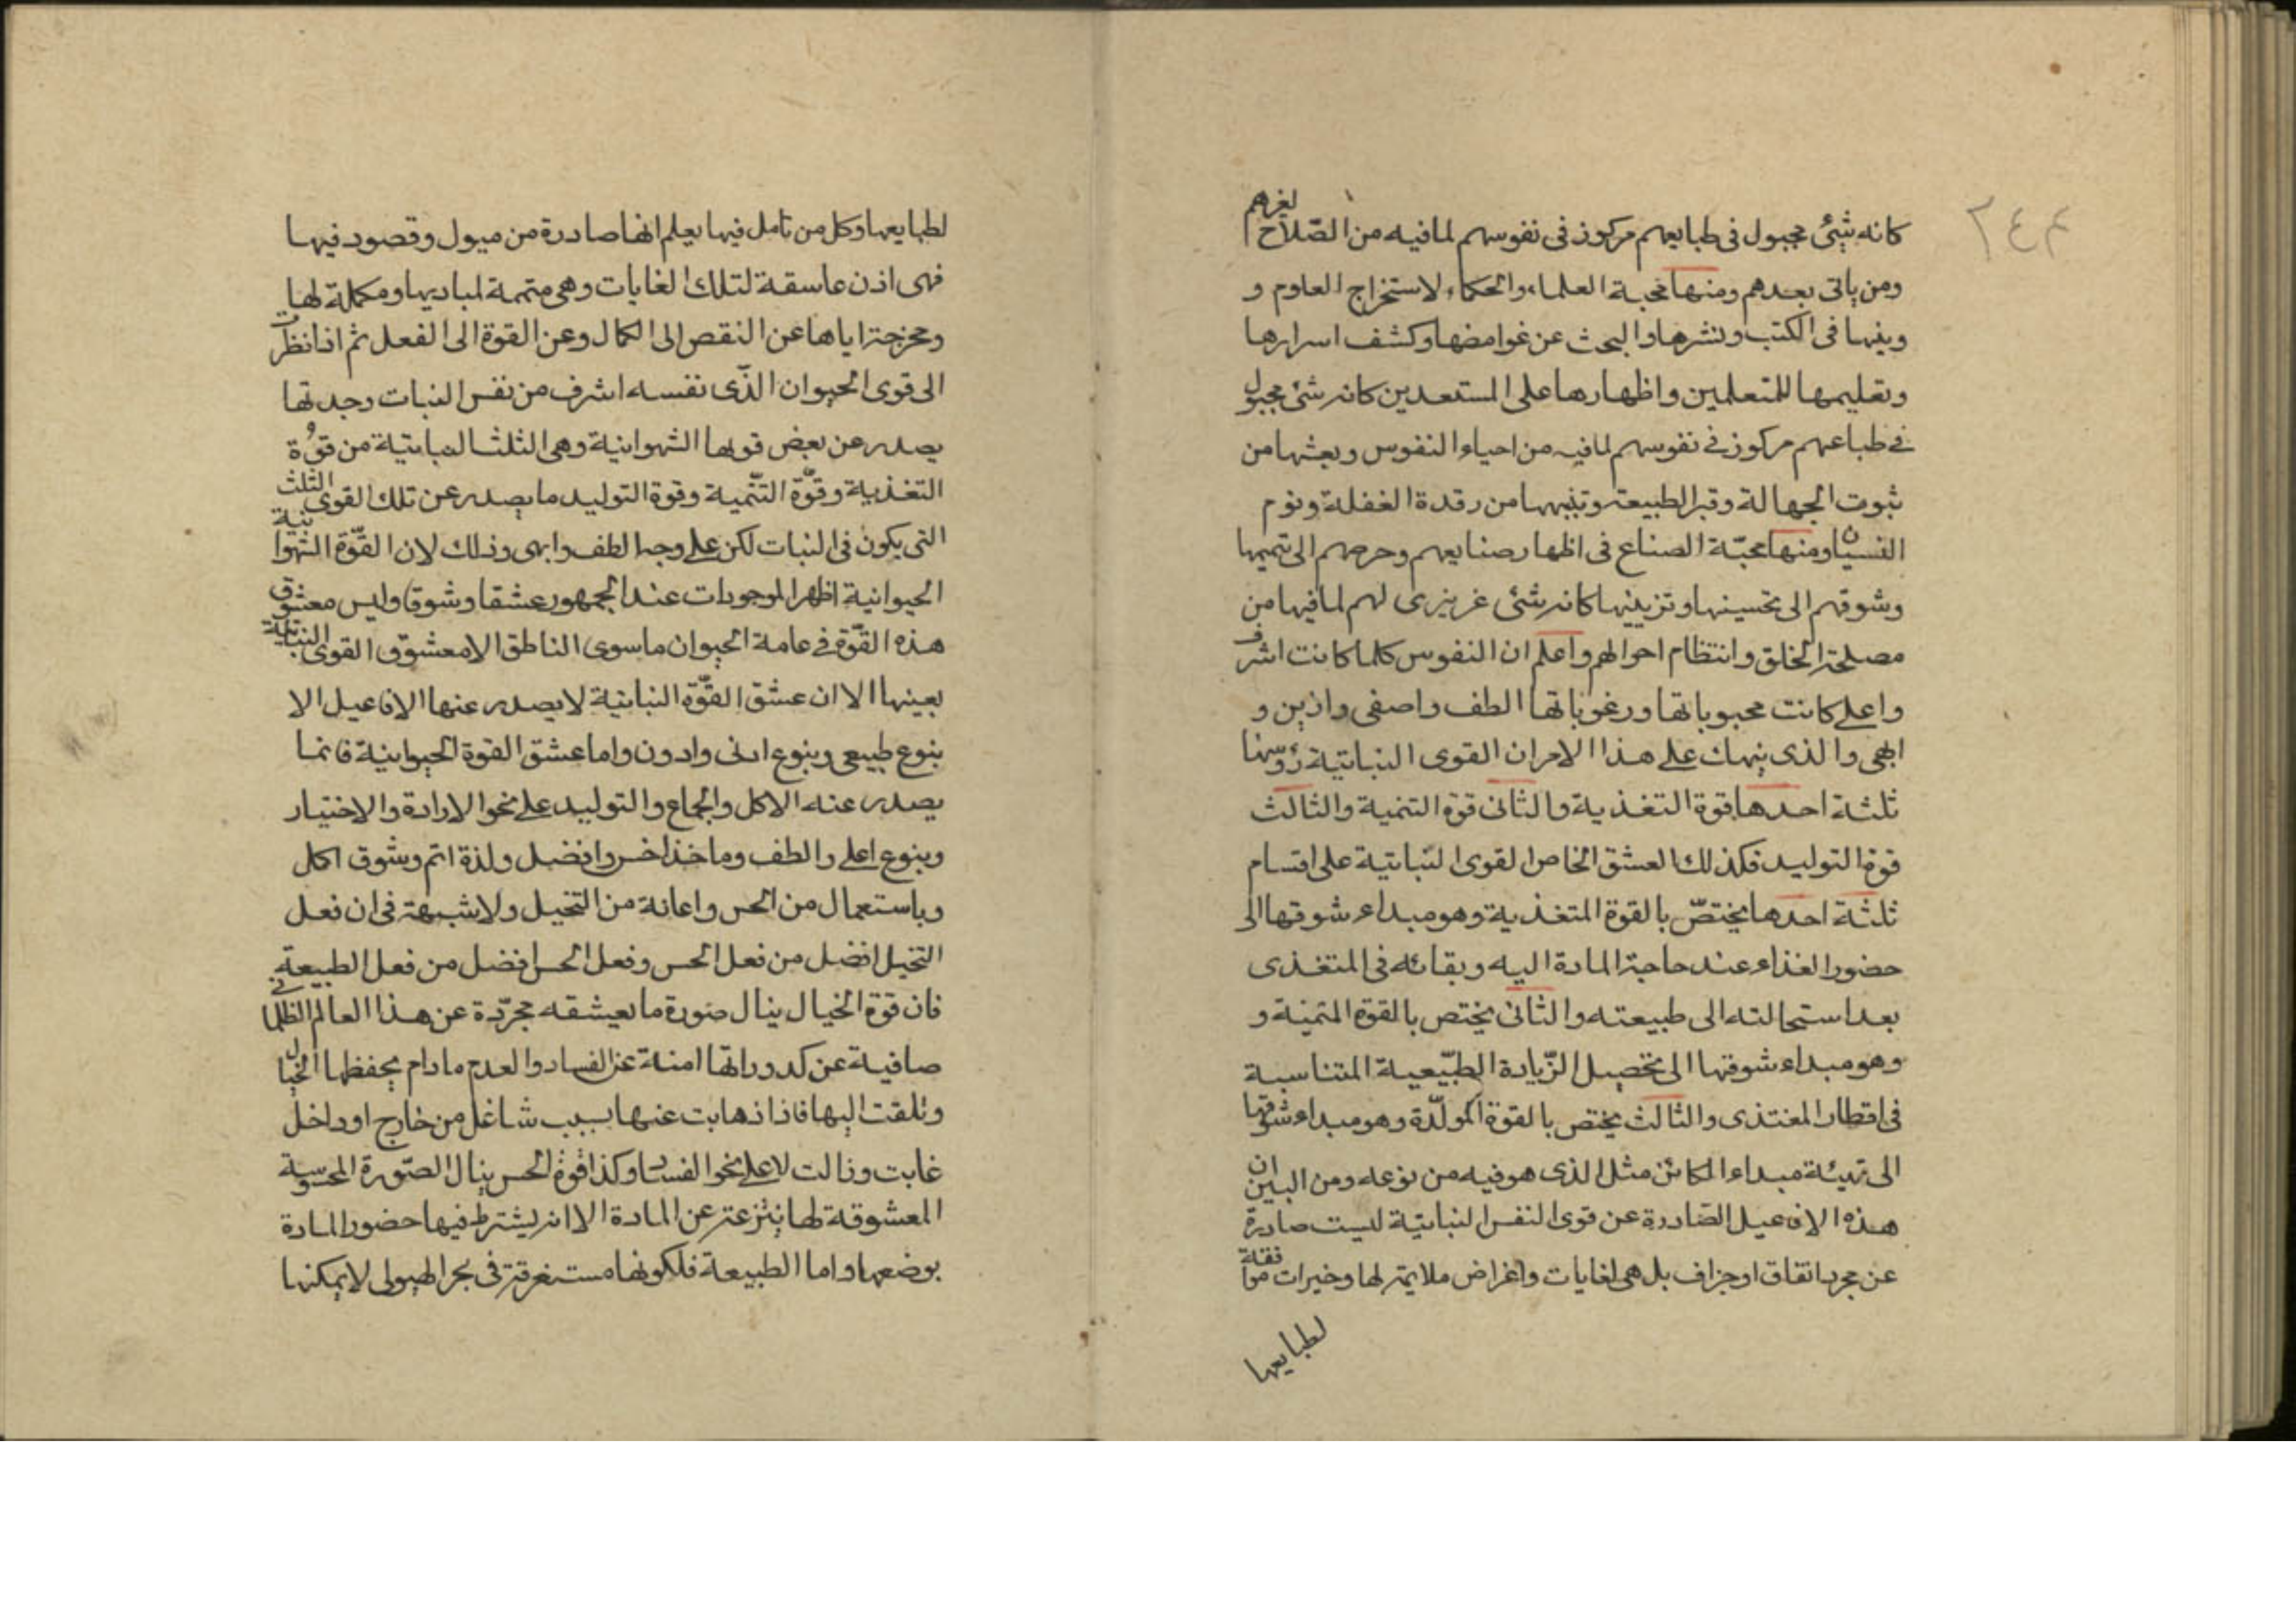 ٢٤٤
كانه شئ مجبول فى طبايعهم مركوز فى نفوسهم لما فيه من الصّلاح لغيرهم
ومن ياتى بعدهم ومنها محبة العلماء والحكماء لاستخراج العلوم و
وبثها فى الكتب ونشرها والبحث عن غوامضها وكشف اسرارها
وتعليمها للمتعلمين واظهارها على المستعدين كانه شئ مجبول
فى طباعهم مركوز فى نفوسهم لما فيه من احياء النفوس وبعثها من
ثبوت الجهالة وقبر الطبيعة وتنبيهها من رقدة الغفلة ونوم
النسيان ومنها محبّة الصناع فى اظهار صنايعهم وحرصهم الى تتميمها
وشوقهم الى تحسينها وتزيينها كانه شئ غريزى لهم لما فيها من
مصلحة الخلق وانتظام احوالهم واعلم ان النفوس كلما كانت اشرف
واعلى كانت محبوباتها ورغوباتها الطف واصفى وازين و
ابهى والذى ينبهك على هذا الامر ان القوى النباتية رؤسها
ثلثة احدها قوة التغذية والثانى قوة التنمية والثالث
قوة التوليد فكذلك العشق الخاص القوى النباتية على اقسام
ثلثة احدها يختصّ بالقوة المتغذية وهو مبداء شوقها الى
حضور الغذاء عند حاجة المادة اليه وبقائه فى المتغذى
بعد استحالته الى طبيعته والثانى يختص بالقوة المتمنية و
وهو مبداء شوقها الى تحصيل الزّيادة الطبّيعية المتناسبة
فى اقطار المغتذى والثالث يختص بالقوة المولّدة وهو مبداء شوقها
الى تهيئة مبداء الكائن مثل الذى هو فيه من نوعه ومن البين ان
هذه الافاعيل الصّادرة عن قوى النفس النباتيّة ليست صادرة
عن مجرد اتفاق او جزاف بل هى لغايات واغراض ملايمة لها وخيرات موافقة
لطبايعها
لطبايعها وكل من تامل فيها يعلم انها صادرة من ميول وقصود فيها
فهى اذن عاسقة لتلك الغايات وهى متممة لمباديها ومكملة لها
ومخرجة اياها عن النقص الى الكمال وعن القوة الى الفعل ثم اذا نظرت
الى قوى الحيوان الذّى نفسه اشرف من نفس النبات وجدتها
يصدر عن بعض قوتها الشهوانية وهى الثلث النباتية من قوّة
التغذية وقوّة التّنمية وقوة التوليد ما يصدر عن تلك القوى الثلث
التى يكون فى النبات لكن على وجه الطف وابهى وذلك لان القوّة الشهوانية
الحيوانية اظهر الموجودات عند الجمهور عشقا وشوقا وليس معشوق
هذه القوّة فى عامة الحيوان ما سوى الناطق الا معشوق القوى النباتية
بعينها الا ان عشق القوّة النباتية لا يصدر عنها الافاعيل الا
بنوع طبيعى وبنوع ادنى وادون واما عشق القوة الحيوانية فانما
يصدر عنه الاكل والجماع والتوليد على نحو الارادة والاختيار
وبنوع اعلى والطف وماخذ اخر وافضل ولذة اتم وشوق اكل
وباستعمال من الحس واعانة من التخيل ولا شبهة فى ان فعل
التخيل افضل من فعل الحس وفعل الحس افضل من فعل الطبيعة
فان قوة الخيال ينال صورة ما يعيشقه مجرّدة عن هذا العالم الظلمانى
صافية عن كدوراتها امنة عن الفساد والعدم ما دام يحفظها الخيال
وتلقت اليها فاذا ذهابت عنها بسبب شاغل من خارج او داخل
غابت وزالت لا على نحو الفساد وكذا قوة الحس ينال الصّورة المحسوسة
المعشوقة لها بنزعته عن المادة الا انه يشترط فيها حضور المادة
بوضعها واما الطبيعة فلكونها مستغرقة فى بحر الهيولى لا يمكنها